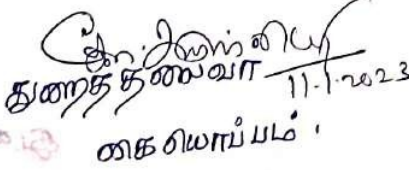 துணைத்தலைவர் 11.1.2023
கையொப்பம்.